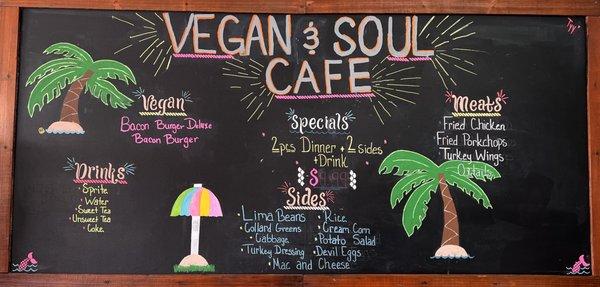 VEGAN & SOUL
CAFE
Vegan
Bacon Burger Deluxe
Bacon Burger
Drinks
Sprite
Water
Sweet Tea
Unsweet Tea
Coke
Specials
2pcs Dinner + 2 sides
+ Drink
Sides
Lima Beans
Collard Greens
Cabbage
Turkey Dressing
Rice
Cream Corn
Potato Salad
Devil Eggs
Mac and Cheese
Meats
Fried Chicken
Fried Porkchops
Turkey Wings
Oxtails